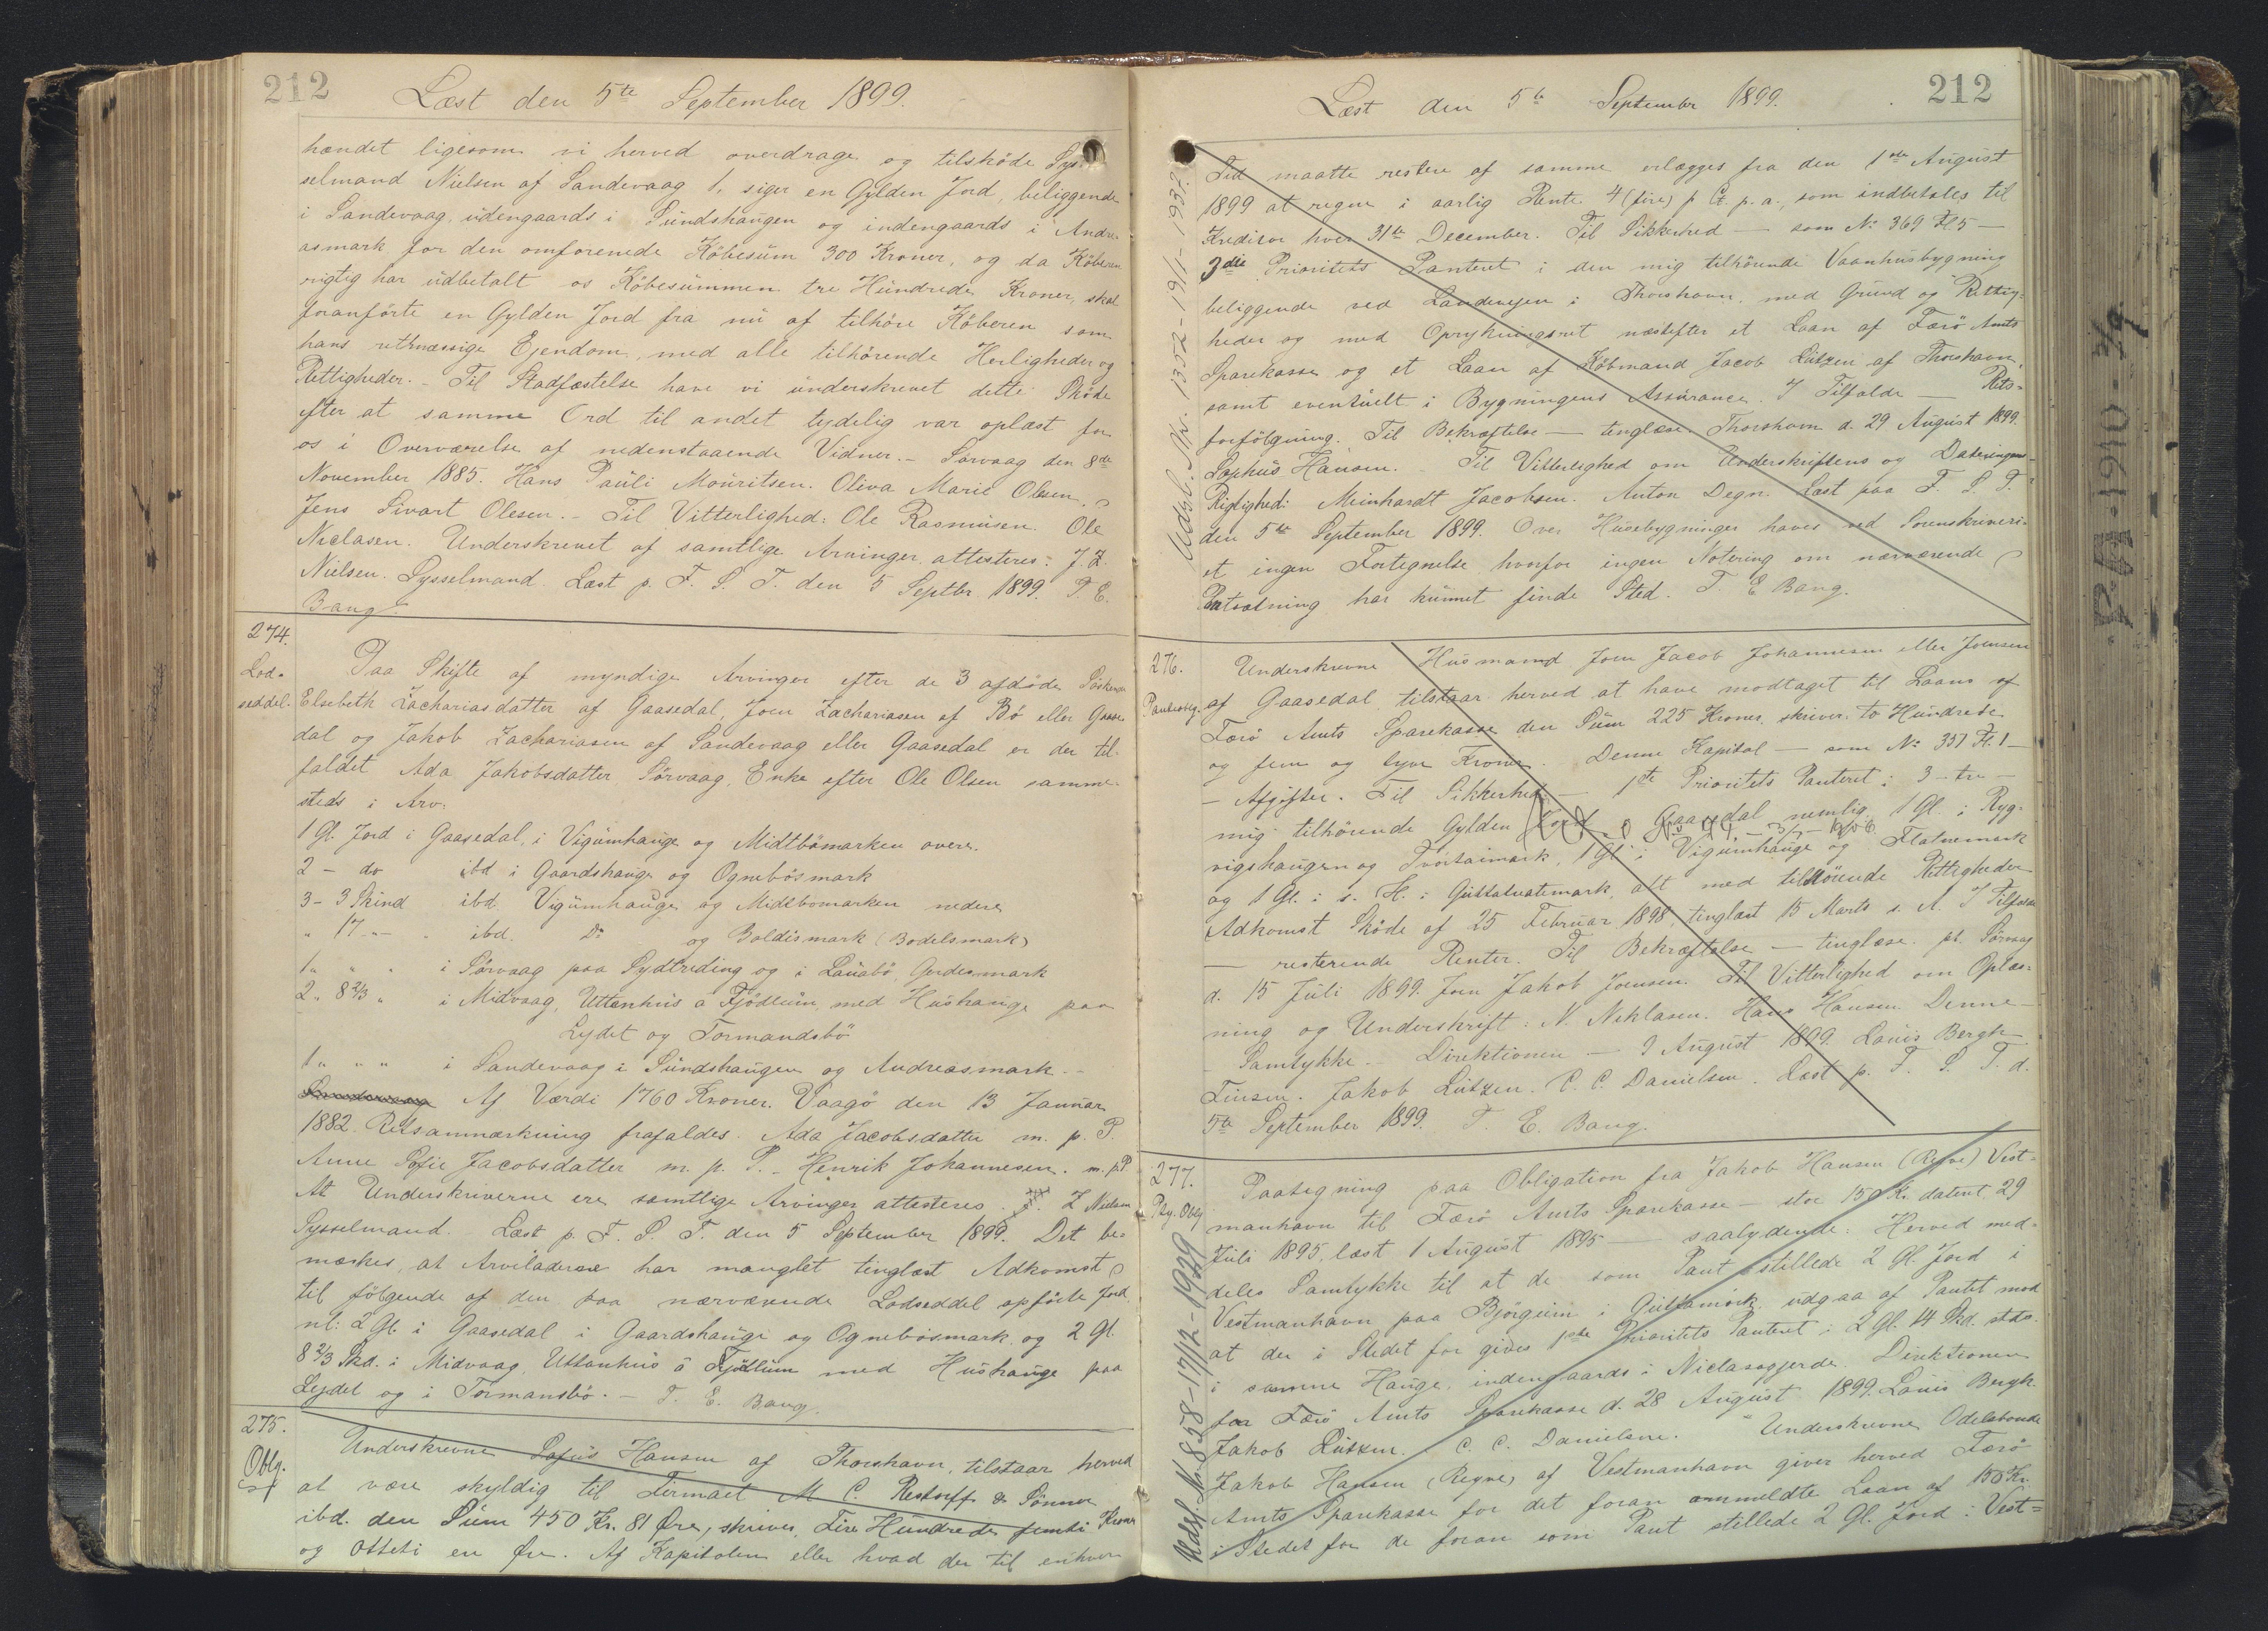 212
Læst den 5te September 1899.
hændet ligesom vi herved overdrage og tilsköde Sys-
selmand Nielsen af Sandevaag 1, siger en Gylden Jord, beliggende
i Sandevaag, udengaards i Sundshaugen og indengaards i Andre-
asmark for den omforenede Köbesum 300 Kroner, og da Köberen
rigtig har udbetalt os Köbesummen tre Hundrede Kroner, skal
foranförte en Gylden Jord fra nu af tilhöre Köberen som
hans retmæssige Ejendom, med alle tilhörende Herligheder og
Rettigheder. - Til Stadfæstelse have vi underskrevet dette Sköde
efter at samme Ord til andet tydelig var oplæst for
os i Overværelse af nedenstaaende Vidner. - Sörvaag den 8de
November 1885. Hans Pauli Mouritsen. Oliva Marie Olesen.
Jens Sivart Olesen. - Til Vitterlighed: Ole Rasmusen. Ole
Niclasen. Underskrevet af samtlige Arvinger attesteres: J. Z.
Nielsen. Sysselmand. Læst p. F. S. T. den 5 Septbr 1899. T. E.
Bang
274.
Lod-
seddel.
Paa Skifte af myndige Arvinger efter de 3 afdöde Söskende
Elsebeth Zachariasdatter af Gaasedal, Joen Zachariasen af Bö eller Gaase
dal og Jakob Zachariasen af Sandevaag eller Gaasedal er der til-
faldet Ada Jakobsdatter Sörvaag, Enke efter Ole Olsen samme-
steds i Arv:
1 Gl. Jord i Gaasedal, i Vigumhauge og Midtbömarken övere.
2 - do ibd i Gaardshauge og Ognebösmark
3 - 3 Skind ibd. Vigumhauge og Midtbömarken nedere
" 17 " - " ibd. Do og Boldismark (Bodelsmark)
1 " " " i Sörvaag paa Sydtreding og i Lauabö, Gerdesmark
2 " 8 2/3 " i Midvaag, Uttanhus á Fjödlum, med Hushauge paa
Lydet og Tormandsbö
1 " " " i Sandevaag i Sundshaugen og Andreasmark. -
Af Værdi 1760 Kroner. Vaagö den 13 Januar
1882. Retsanmærkning frafaldes. Ada Jacobsdatter m. p. P.
Anne Sofie Jacobsdatter m. p. P. - Henrik Johannesen. m. p. P.
At Underskriverne ere samtlige Arvinger attesteres J. Z Nielsen
Sysselmand. Læst p. F. S. T. den 5 September 1899. Det be-
mærkes, at Arveladerne har manglet tinglæst Adkomst
til fölgende af den paa nærværende Lodseddel opförte Jord
nl: 2 Gl. i Gaasedal i Gaardshauge og Ognebösmark, og 2 Gl.
8 2/3 Skd. i Midvaag, Uttanhus á Fjödlum med Hushauge paa
Lydet og i Tormansbö. - T. E. Bang.
275.
Oblg.
Underskrevne Sofus Hansen af Thorshavn, tilstaar herved
at være skyldig til Firmaet M. C. Restorff & Sönner
ibd. den Sum 450 Kr. 81 Öre, skriver Fire Hundrede femti Kroner
og otteti en Öre. Af Kapitalen eller hvad der til enhver
212
Læst den 5te September 1899.
Udsl. Nr. 1352 - 19/1 - 1937.
Tid maatte restere af samme erlægges fra den 1ste August
1899 at regne i aarlig Rente 4 (fire) p Ct. p. a., som indbetales til
Kreditor hver 31te December. Til Sikkerhed - som No 369 Fl 5 -
3die Prioritets Panteret i den mig tilhörende Vaanhusbygning
beliggende ved Landevejen i Thorshavn, med Grund og Rettig-
heder og med Oprykningsret næstefter et Laan af Færö Amts
Sparekasse og et Laan af Köbmand Jacob Lützen af Thorshavn,
samt eventuelt i Bygningens Assurance. I Tilfælde - Rets-
forfölgning. Til Bekræftelse - tinglæse. Thorshavn d. 29 August 1899.
Sophus Hansen. - Til Vitterlighed om Underskriftens og Dateringens
Rigtighed: Meinhardt Jacobsen. Anton Degn. Læst paa F. S. T.
den 5te September 1899. Over Husebygninger haves ved Sorenskriveri-
et ingen Fortegnelse, hvorfor ingen Notering om nærværende
Pantsætning har kunnet finde Sted. T. E Bang.
276.
Panteoblg.
Underskrevne Husmand Joen Jacob Johannesen eller Joensen
af Gaasedal, tilstaar herved at have modtaget til Laans af
Færö Amts Sparekasse den Sum 225 Kroner, skriver to Hundrede
og fem og tyve Kroner. Denne Kapital - som No 351 Fl. 1 -
- Afgifter. Til Sikkerhed - 1ste Prioritets Panteret i 3 - tre -
mig tilhörende Gylden Jord i Gaasedal nemlig 1 Gl. i Ryg-
vigshaugen og Tvörtaimark, 1 Gl i Vigumhauge og Flatnemark
og 1 Gl. i s. H. i Guttaluatemark, alt med tilhörende Rettigheder
Adkomst Sköde af 25 Februar 1898, tinglæst 15 Marts s. A. I Tilfælde
- resterende Renter. Til Bekræftelse - tinglæse. pt. Sörvaag
d. 15 Juli 1899. Joen Jakob Joensen. Til Vitterlighed om Oplæs-
ning og Underskrift: N. Niklasen. Hans Hansen. Denne -
- Samtykke. - Direktionen - 9 August 1899. Louis Bergh
Finsen. Jakob Lützen. C. C. Danielsen. Læst p. F. S. T. d.
5te September 1899. T. E. Bang.
277.
Ptg. Oblg
Udsl. Nr. 858 - 17/12 - 1929
Paategning paa Obligation fra Jakob Hansen (Reyve) Vest-
manhavn til Færö Amts Sparekasse - stor 150 Kr. dateret 29
Juli 1895, læst 1 August 1895 - saalydende: Herved med-
deles Samtykke til at de som Pant stillede 2 Gl. Jord i
Vestmanhavn paa Björgum i Guttamörk udgaa af Pantet mod
at der i Stedet for gives 1ste Prioritets Panteret i 2 Gl. 14 Skd. stds.
i samme Hauge, indengaards i Niclasagjerde. Direktionen
for Færö Amts Sparekasse d. 28 August 1899. Louis Bergh.
Jakob Lützen. C. C. Danielsen. " Underskrevne Odelsbonde
Jakob Hansen (Reyve) af Vestmanhavn giver herved Færö
Amts Sparekasse for det foran ommeldte Laan af 150 Kr.
i Stedet for de foran som Pant stillede 2 Gl. Jord i Vest-